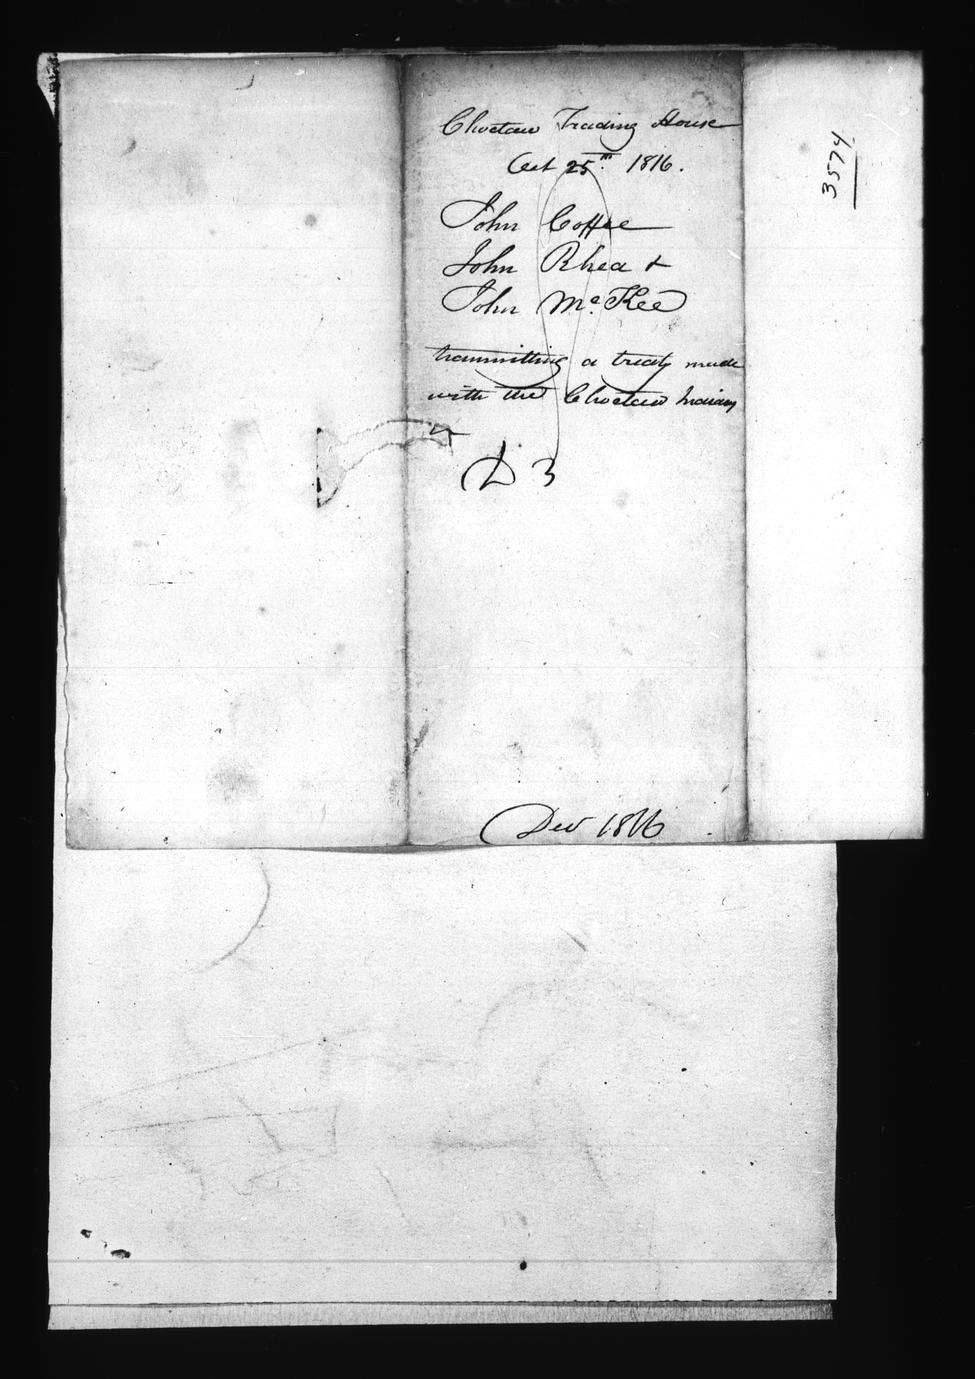 Choctaw Trading House
Oct 25th 1816.
John Coffee
John Rhea &
John McKee
transmitting a treaty made
with the Choctaw Indians
D 3
Dec 1816
3574